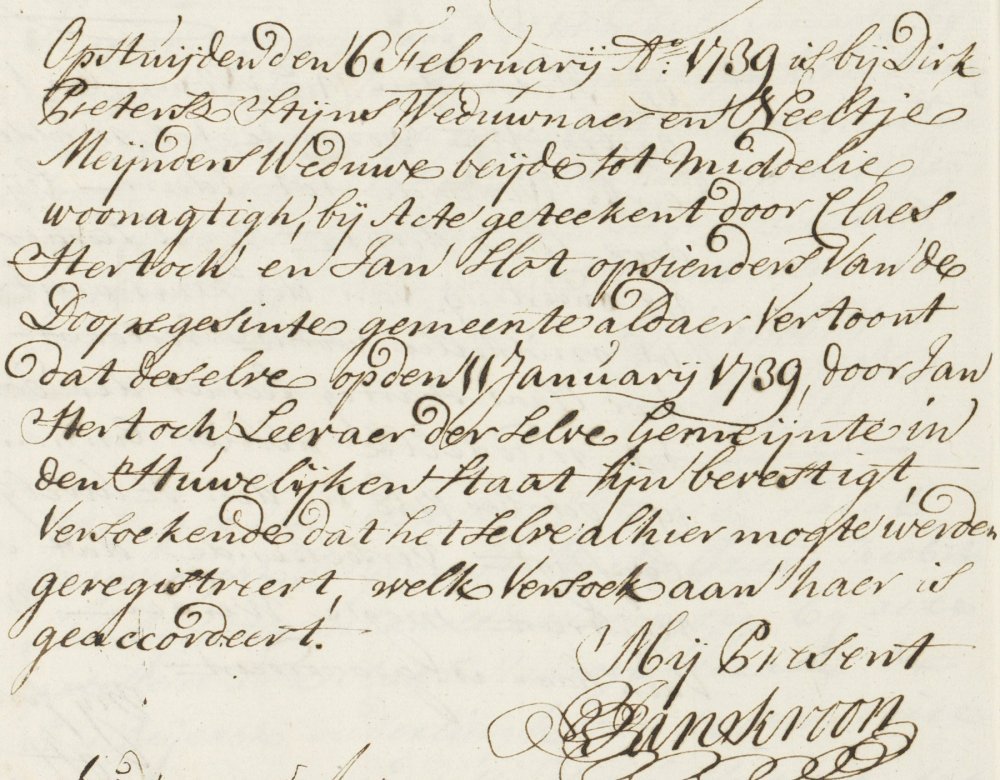 Op Huijden den 16 February Ao. 1739 is bij Dirk
Pieters Stijns Weduwnaer en Neeltje
Meijnders Weduwe beijde tot Middelie
woonagtigh, bij Acte geteekent door Claes
Hertoch en Jan Slot opsienders van de
Doopsgesinte gemeente aldaer vertoont
dat deselve op den 11 January 1739, door Jan
Hertoch Leeraer der selve Gemeijnte in
den Huwelijken Staat sijn bevestigt,
Versoekende dat het selve alhier mogte werden
geregistreert, welk Versoek aan haer is
geaccordeert.
Mij Present